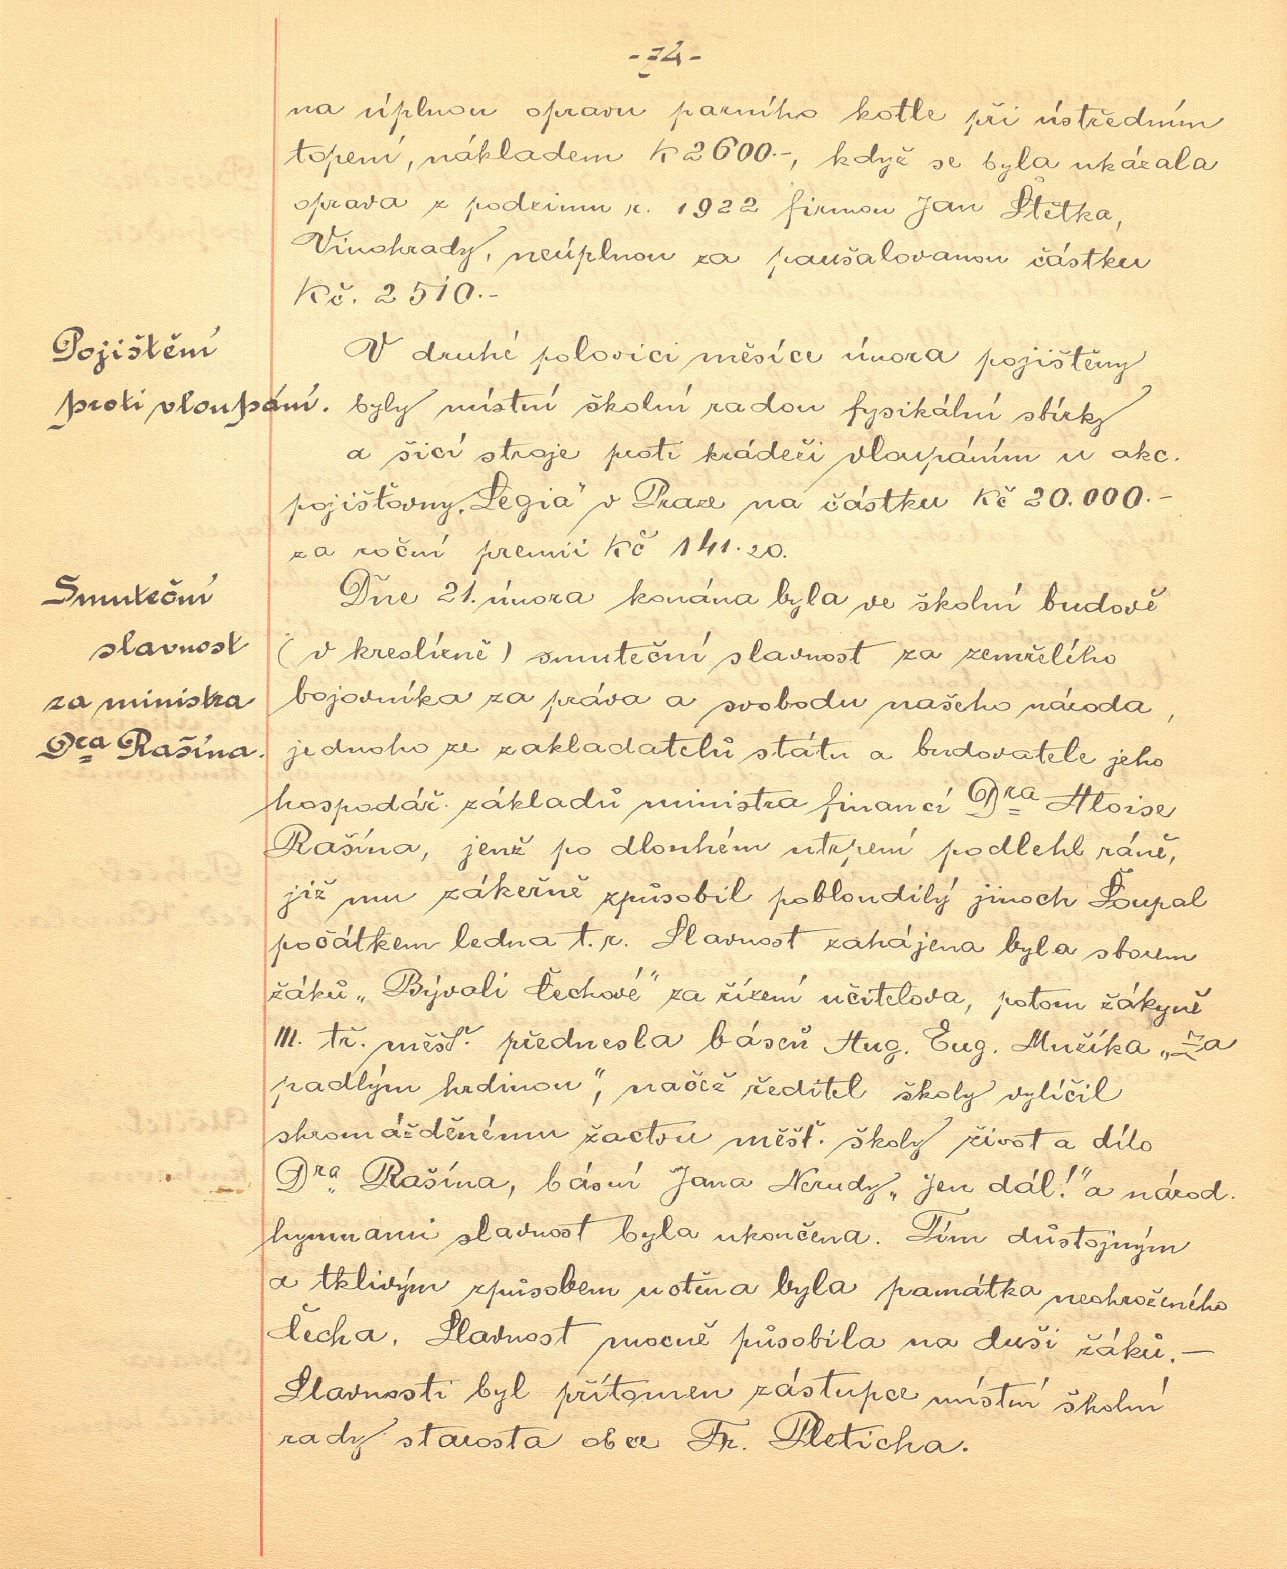 - 74 -
na úplnou opravu parního kotle při ústředním
topení, nákladem K 2600.-, když se byla ukázala
oprava z podzimu r. 1922 firmou Jan Štětka,
Vinohrady, neúplnou za paušalovanou částku
Kč. 2510.-
Pojištění
proti vloupání.
V druhé polovici měsíce února pojištěny
byly místní školní radou fysikální sbírky
a šicí stroje proti krádeži vloupáním u akc.
pojišťovny „Legia" v Praze na částku Kč 20.000.-
za roční premii Kč 141.20.
Smuteční
slavnost
za ministra
Dra Rašína.
Dne 21. února konána byla ve školní budově
(v kreslírně) smuteční slavnost za zemřelého
bojovníka za práva a svobodu našeho národa,
jednoho ze zakladatelů státu a budovatele jeho
hospodář. základů ministra financí Dra Aloise
Rašína, jenž po dlouhém utrpení podlehl ráně,
již mu zákeřně způsobil pobloudilý jinoch Šoupal
počátkem ledna t. r. Slavnost zahájena byla sborem
žáků „Bývali Čechové" za řízení učitelova, potom žákyně
III. tř. měšť. přednesla báseň Aug. Eug. Mužíka „Za
padlým hrdinou", načež ředitel školy vylíčil
shromážděnému žactvu měšť. školy život a dílo
Dra Rašína, básní Jana Nerudy „Jen dál!" a národ.
hymnami slavnost byla ukončena. Tím důstojným
a tklivým způsobem uctěna byla památka neohroženého
Čecha. Slavnost mocně působila na duši žáků. —
Slavnosti byl přítomen zástupce místní školní
rady starosta obce Fr. Pleticha.